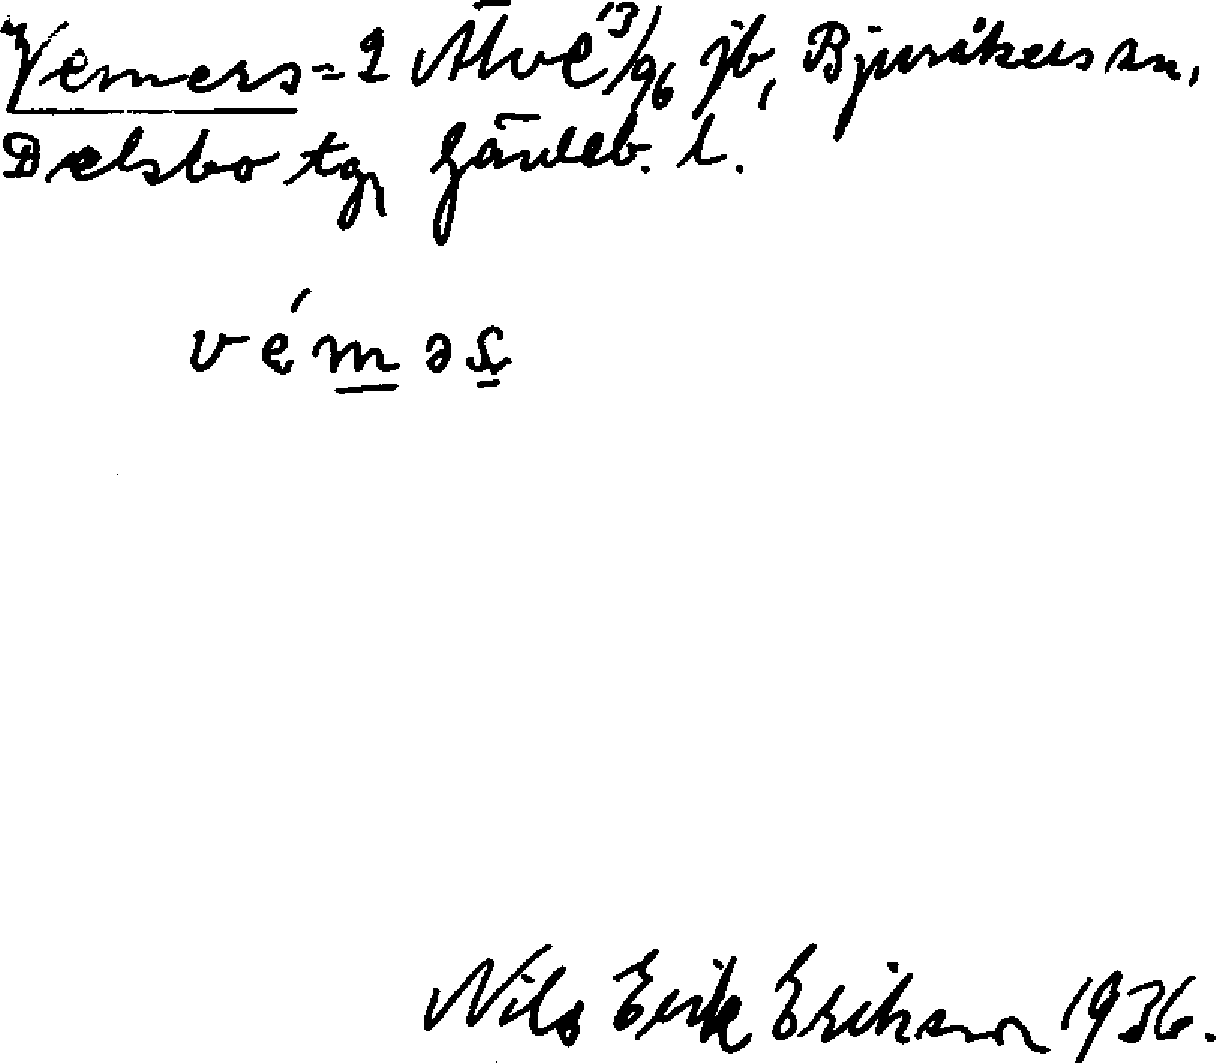 Vemers = 2 Älve 13/96 jb, Bjuråkers sn,
Delsbo tg, Gävleb. l.
vémǝs
Nils Erik Erikson 1936.